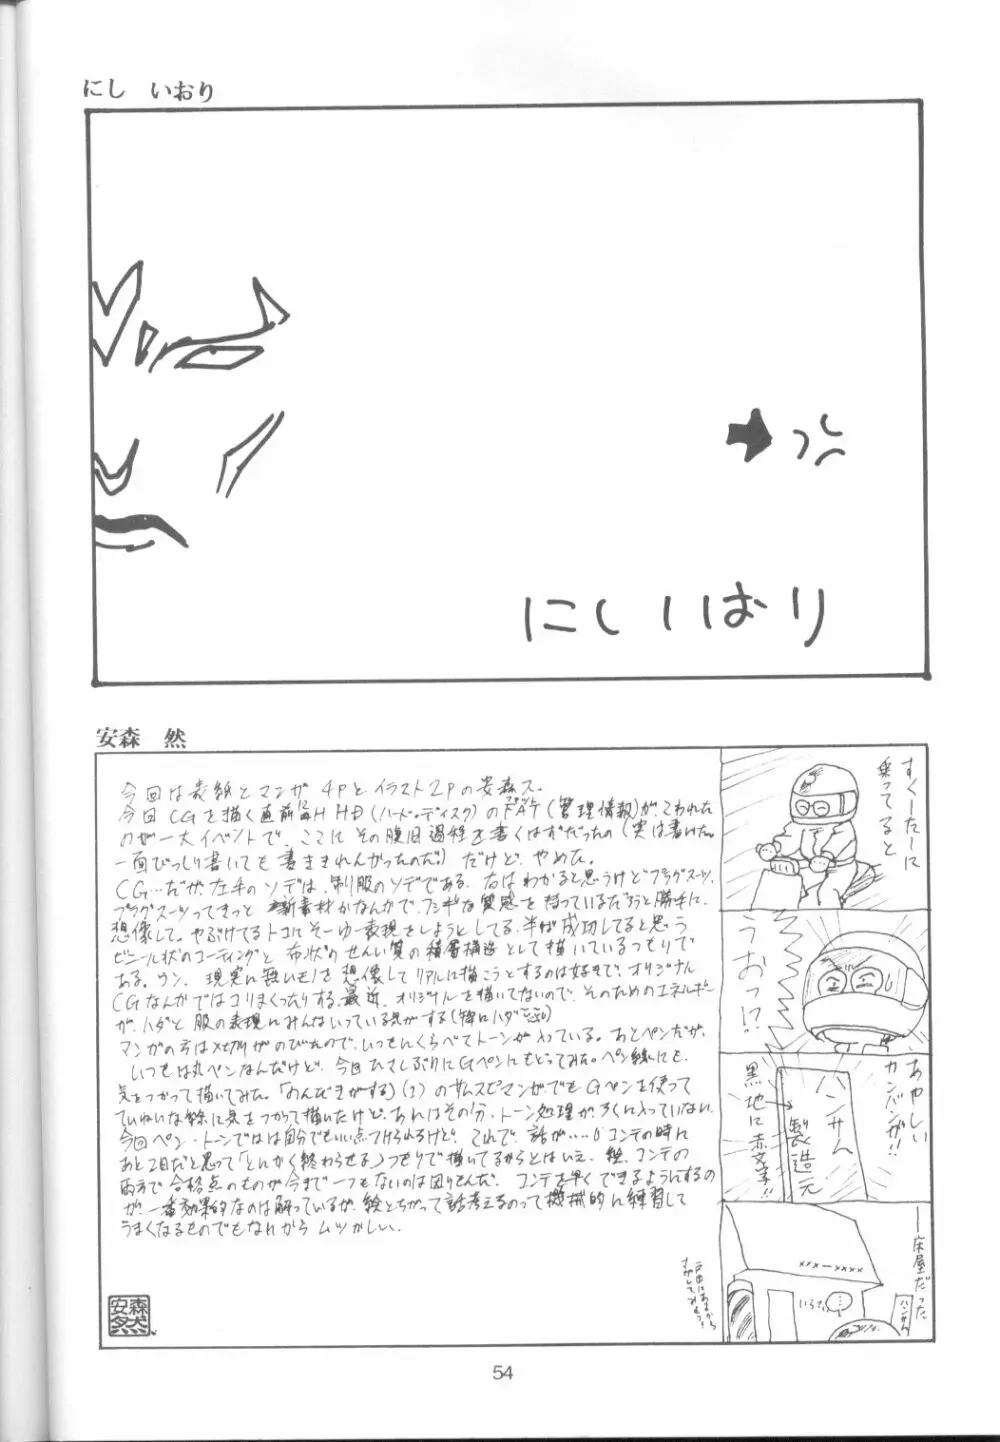 にし いおり
にしいおり
安森 然
今回は表紙とマンガ 4Pとイラスト2Pの安森ス。
今回 CGを描く直前にHD(ハード・ディスク)のFAT(管理情報)が、こわれた
のが一大イベントで、ここに その復旧過程を書くはずだったの(実は書いた。
一面びっしり書いても書ききれんかったのだ)だけど、やめた。
CG…だが、左手のソデは、制服のソデである。右はわかると思うけどプラグスーツ。
プラグスーツってきっと 新素材かなんかで、フシギな質感を持っているだろうと勝手に
想像して。やぶけてるトコにそーゆー表現をしようとしてる。半ば成功してると思う
ビニール状のコーティングと 布状のせんい質の積層構造として描いているつもりで
ある。ウン。現実に無いモノを想像してリアルに描こうとするのは好きで、オリジナル
CGなんかではコリまくったりする。最近、オリジナルを描いてないので、そのためのエネルギー
が、ハダと服の表現にみんないっている気がする
マンガの方は〆切がのびたので、いつもにくらべてトーンが入っている。あとペンだが、
いつもは丸ペンなんだけど、今回ひさしぶりにGペンにもどってみた。ペン線にも、
気をつかって描いてみた。「のんびきがする」(1)のサムスピマンガでもGペンを使って
ていねいな線に気をつかって描いたけど、あれはその分、トーン処理が、ろくに入っていない。
今回ペン・トーンでは自分でもいい点つけられるけど、これで、話が……。コンテの時に
あと2日だと思って「とにかく終わらせる」つもりで描いてるからとはいえ、絵、コンテの
両方で合格点のものが今まで一つもないのは困りもんだ。コンテを早くできるようにするの
が、一番効果的なのは解っているが、絵とちがって話考えるのって機械的に練習して
うまくなるものでもなれからムツかしい。
安森然
すくーたーに
乗ってると
うおっ!?
あやしい
カンバンが!!
ハンサム
製造元
黒地に赤文字!!
―床屋だった
ハンサム
54